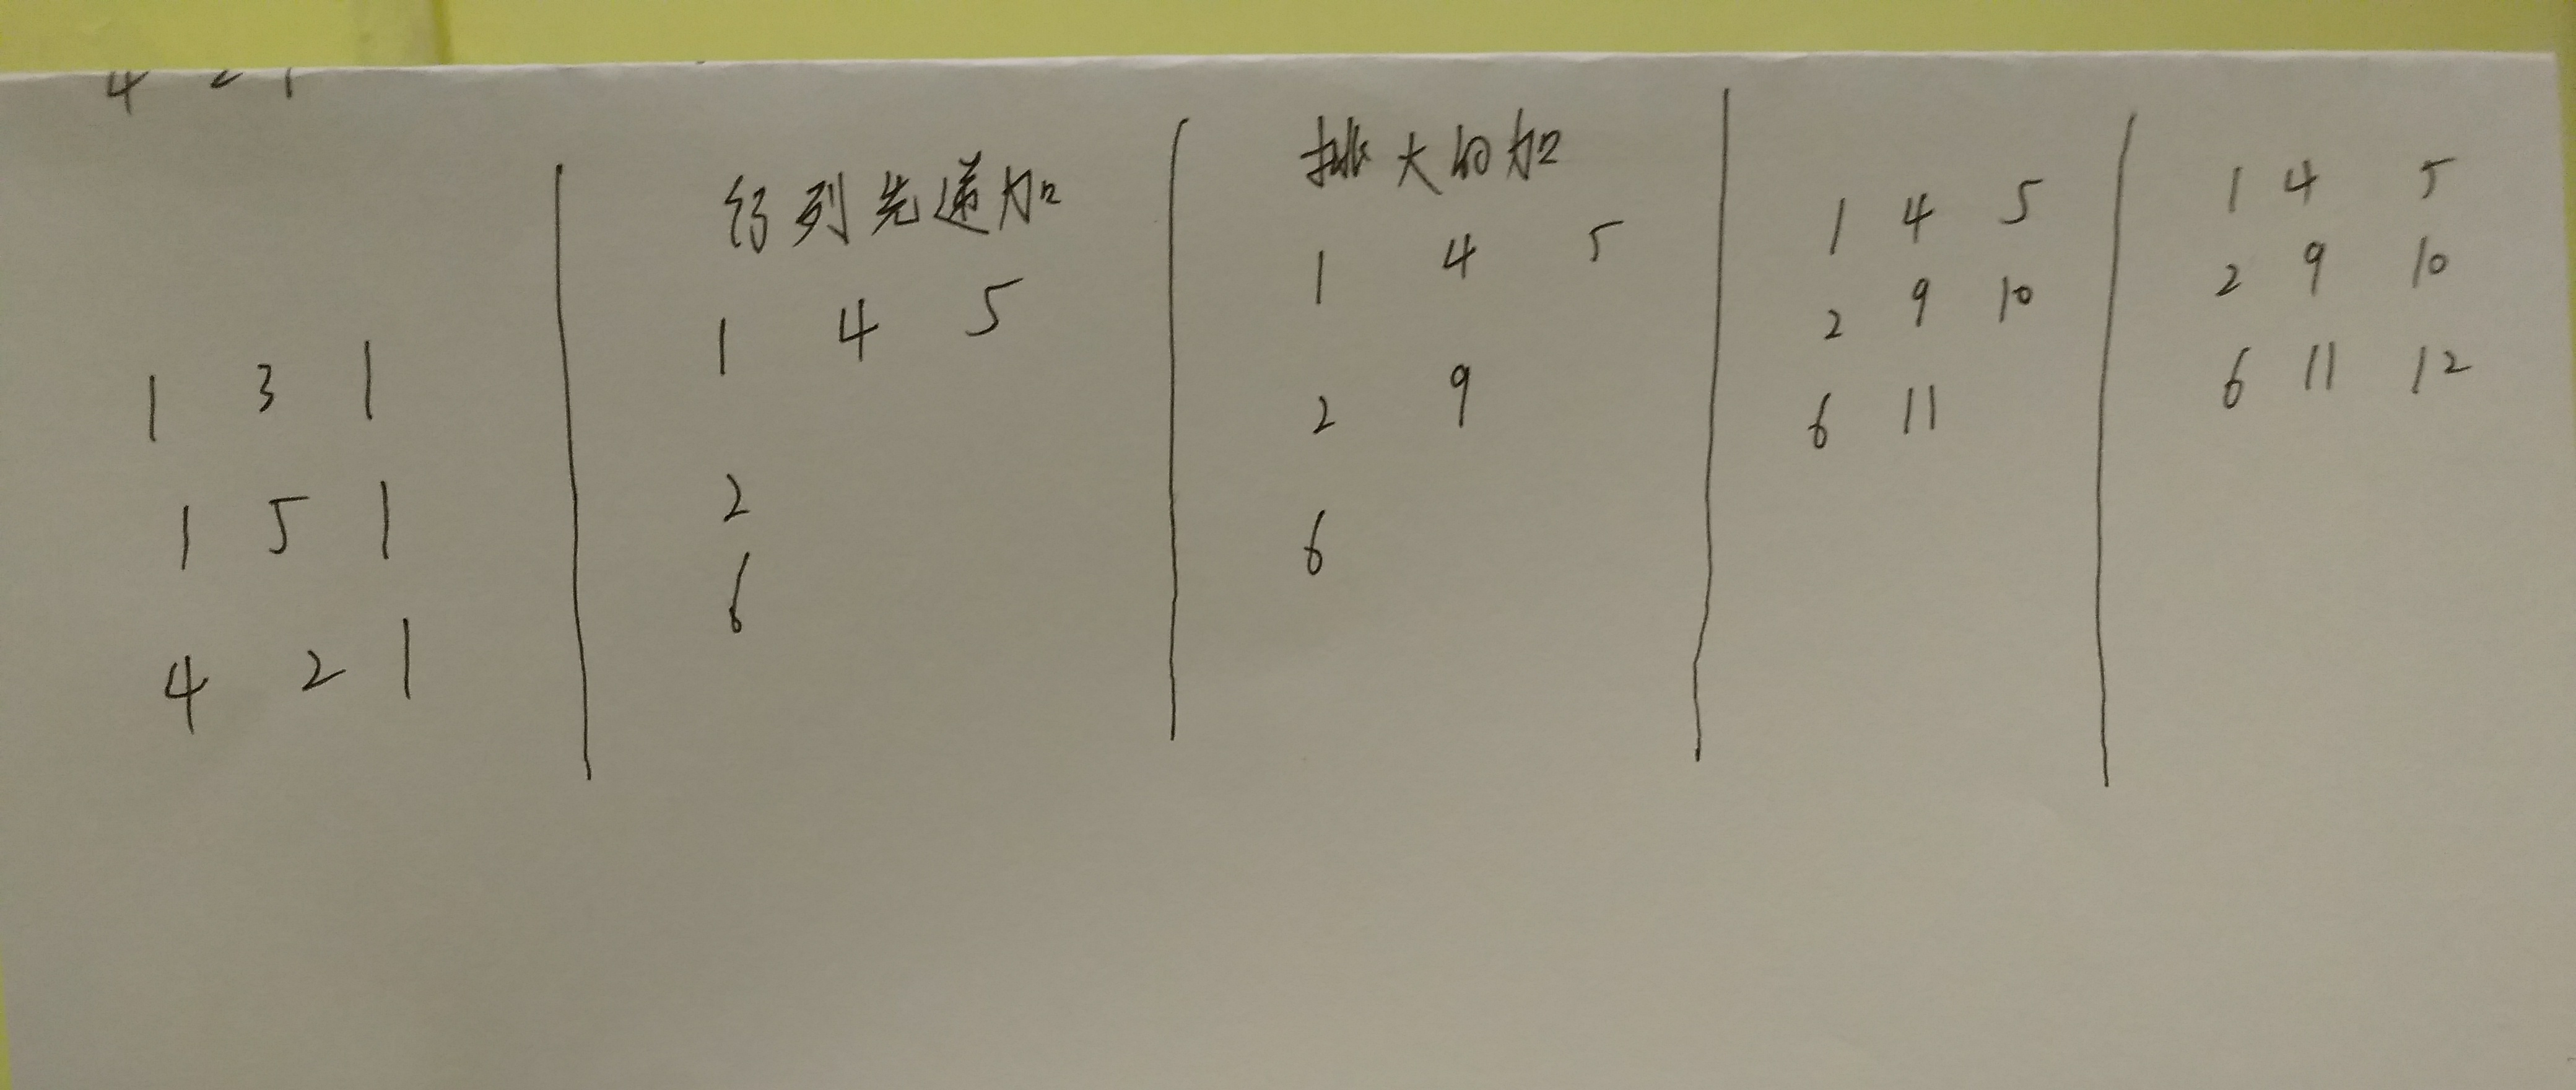 4 2 1
1 3 1
1 5 1
4 2 1
行列先递加
1 4 5
2
6
挑大的加
1 4 5
2 9
6
1 4 5
2 9 10
6 11
1 4 5
2 9 10
6 11 12